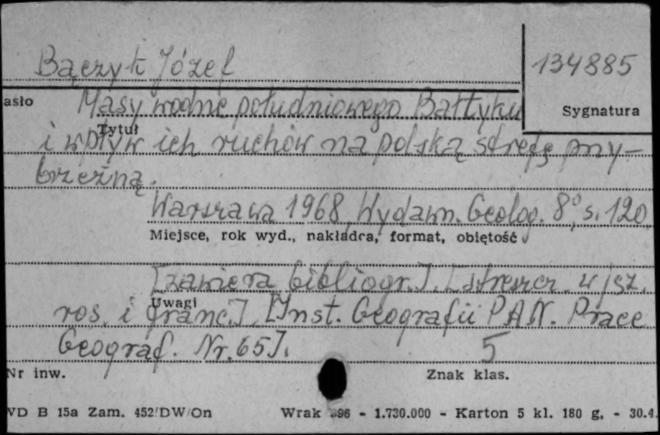 Bączyk Józef
134885
asło
Masy wodne południowego Bałtyku
Sygnatura
Tytuł
i wpływ ich ruchów na polską strefę przy-
brzeżną.
Warszawa 1968 Wydawn. Geolog. 8°, s. 120
Miejsce, rok wyd., nakładca, format, objętość
[zawiera bibliogr.]. [streszcz. w jęz.
Uwagi
ros. i franc.]. [Inst. Geografii PAN. Prace
Geograf. Nr. 65].
5
Nr inw.
Znak klas.
WD B 15a Zam. 452/DW/On
Wrak 396 - 1.730.000 - Karton 5 kl. 180 g. - 30.4.